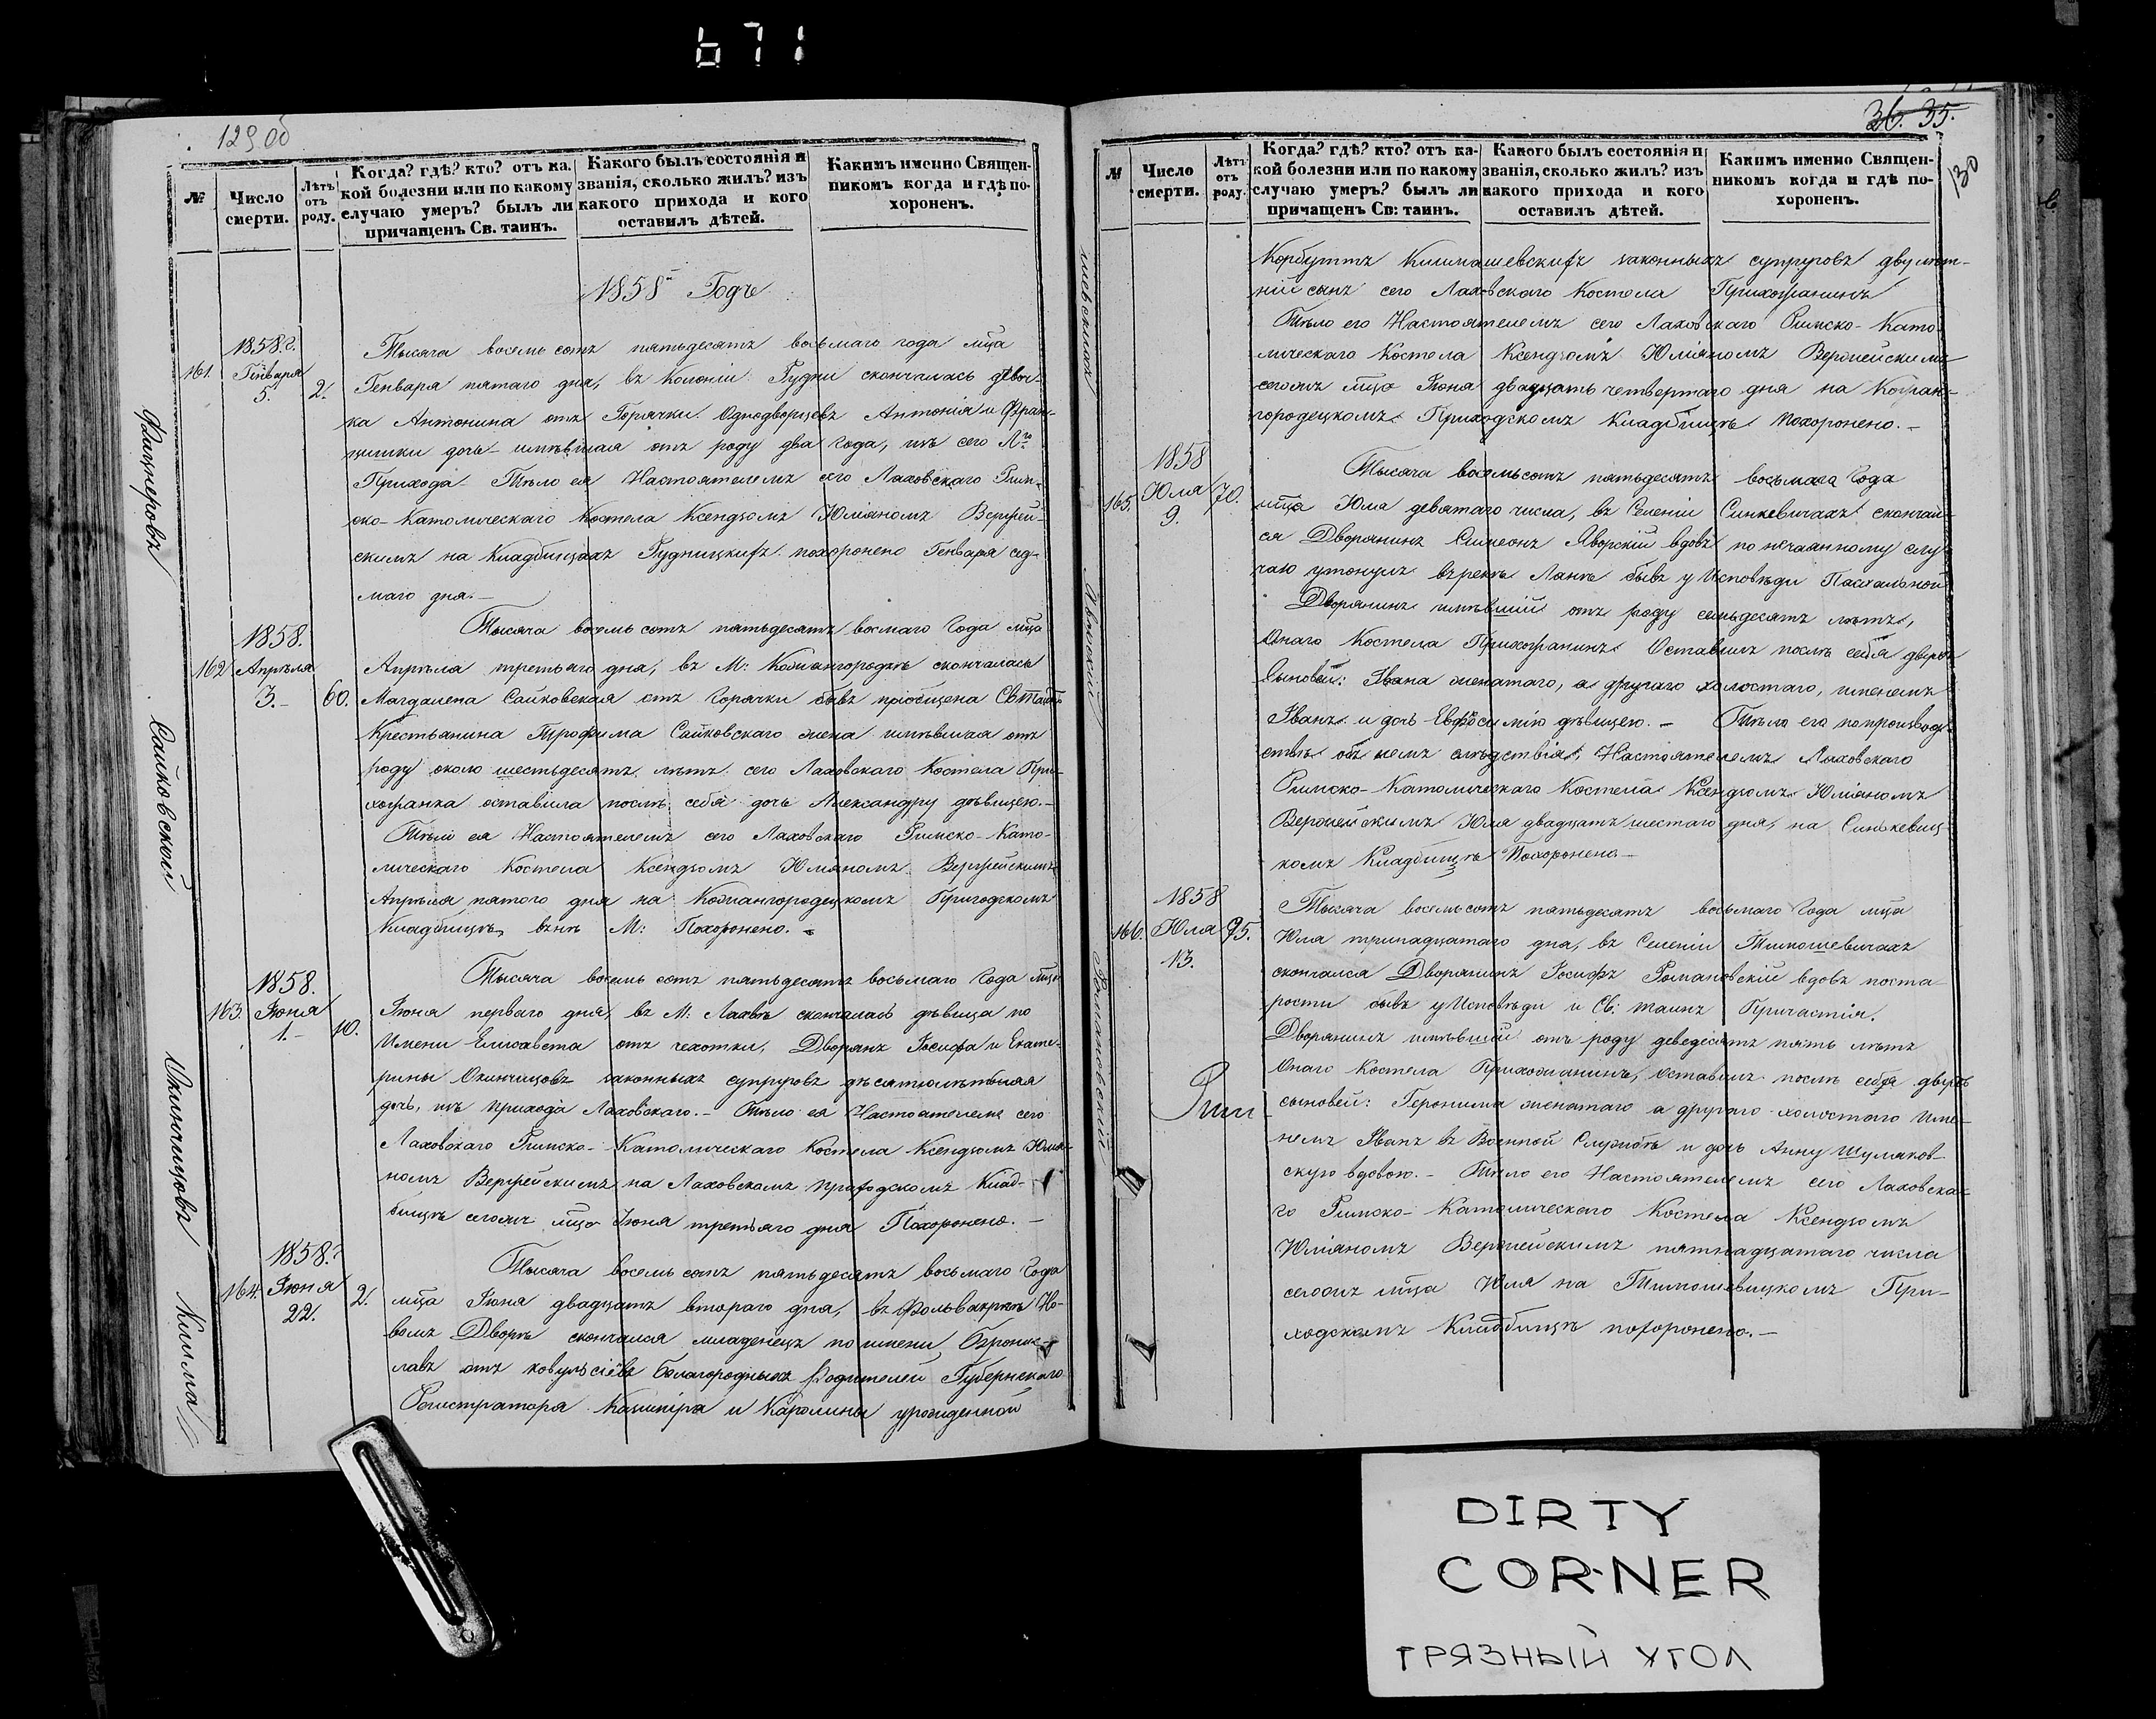 671
129 об
№
Число смерти.
Лѣтъ отъ роду.
Когда? гдѣ? кто? отъ ка-
кой болезни или по какому
случаю умеръ? былъ ли
причащенъ Св. таинъ.
Какого былъ состоянія и
званія, сколько жилъ? изъ
какого прихода и кого
оставилъ дѣтей.
Какимъ именно Священ-
никомъ когда и гдѣ по-
хороненъ.
1858й Годъ
161.
1858 г.
Генваря
5.
2.
Тысяча восемь сотъ пятьдесятъ восьмаго года мца
Генваря пятаго дня, въ Колоніи Рудни скончалась девоч-
ка Антонина отъ Горячки Однодворцевъ Антонія и Фран-
цишки дочь имѣвшая отъ роду два года, изъ сего Лго
Прихода Тѣло ея Настоятелемъ сего Лаховскаго Рим-
ско-Католическаго Костела Ксендзомъ Юліяномъ Вержей-
скимъ на Кладбищахъ Рудницкихъ похоронено Генваря сед-
маго дня.—
162
1858.
Апрѣля
3.—
60.
Тысяча восемь сотъ пятьдесятъ восмаго Года мца
Апрѣля третьяго дня, въ М: Кожангородкѣ скончалась
Магдалена Сайковская отъ Горячки бывъ пріобщена Св Таинъ
Крестьянина Трофима Сайковскаго жена имѣвшая отъ
роду около шестьдесятъ лѣтъ сего Лаховскаго Костела При-
хожанка оставила послѣ себя дочь Александру дѣвицею.—
Тѣло ея Настоятелемъ сего Лаховскаго Римско-Като-
лическаго Костела Ксендзомъ Юліяномъ Вержейскимъ
Апрѣля пятого дня на Кожангородецкомъ Приходскомъ
Кладбищѣ М: Похоронено.
163.
1858.
Іюня
1.—
10.
Тысяча восемь сотъ пятьдесятъ восьмаго Года мца
Іюня перваго дня, въ М: Лахвѣ скончалась дѣвица по
Имени Елисавета отъ чехотки, Дворянъ Іосифа и Екате-
рины Окинчицовъ законныхъ супруговъ десятилѣтняя
дочь, изъ прихода Лаховскаго.— Тѣло ея Настоятелемъ сего
Лаховскаго Римско-Католическаго Костела Ксендзомъ Юлія-
номъ Вержейскимъ на Лаховскомъ приходскомъ Клад-
бищѣ сегожъ мца Іюня третьяго дня Похоронено.—
164.
1858 г
Іюня
22.
2.
Тысяча восемь сотъ пятьдесятъ восьмаго Года
мца Іюня двадцать втораго дня, въ Фольваркѣ Но-
вомъ Дворѣ скончался младенецъ по имени Бронис-
лавъ отъ ковульсіёвъ Благородныхъ Родителей Губернскаго
Регистратора Казимира и Каролины урожденной
Сайковской
Окинчицовъ
36. 35.
130
№
Число смерти.
Лѣтъ отъ роду.
Когда? гдѣ? кто? отъ ка-
кой болезни или по какому
случаю умеръ? былъ ли
причащенъ Св: таинъ.
Какого былъ состоянія и
званія, сколько жилъ? изъ
какого прихода и кого
оставилъ дѣтей.
Какимъ именно Священ-
никомъ когда и гдѣ по-
хороненъ.
Корбуттъ законныхъ супруговъ двулѣт-
ній сынъ сего Лаховскаго Костела Прихожанинъ
Тѣло его Настоятелемъ сего Лаховскаго Римско-Като-
лическаго Костела Ксендзомъ Юліяномъ Вержейскимъ
сегожъ мца Іюня двадцать четвертаго дня на Кожан-
городецкомъ Приходскомъ Кладбищѣ Похоронено.—
165.
1858
Юля
9.
70.
Тысяча восемьсотъ пятьдесятъ восьмаго Года
мца Юля девятаго числа, въ Селеніи Синкевичахъ скончал-
ся Дворянинъ Симеонъ Яворскій вдовъ по нечаянному слу-
чаю утонулъ върекѣ Ланѣ бывъ у Исповѣди Пасхальной
Дворянинъ имѣвшій отъ роду семьдесятъ лѣтъ,
Онаго Костела Прихожанинъ Оставилъ послѣ себя двухъ
Сыновей: Ивана женатаго, а другаго холостаго, именемъ
Іванъ и дочь Евфросимію дѣвицею.— Тѣло его попроизвод-
ствѣ объ немъ слѣдствія, Настоятелемъ Лаховскаго
Римско-Католическаго Костела Ксендзомъ Юліяномъ
Вержейскимъ Юля двадцать шестаго дня, на Синькевиц-
комъ Кладбищѣ Похоронено—
166.
1858
Юля
13.
95.
Тысяча восемьсотъ пятьдесятъ восьмаго Года мца
Юля тринадцатаго дня, въ Селеніи Тимошевичахъ
скончался Дворянинъ Іосифъ Романовскій вдовъ поста-
рости бывъ у Исповѣди и Св: таинъ Причастія.
Дворянинъ имѣвшій отъ роду деведесятъ пять лѣтъ
Онаго Костела Прихожанинъ, оставилъ послѣ себя двухъ
сыновей: Геронима женатаго а другого холостаго име-
немъ Іванъ въ Военной Службѣ и дочь Анну Шумяков-
скую вдовою.— Тѣло его Настоятелемъ сего Лаховска-
го Римско-Католическаго Костела Ксендзомъ
Юліяномъ Вержейскимъ пятнадцатаго числа
сегожъ мца Юля на Тимошевицкомъ При-
ходскомъ Кладбищѣ похоронено.—
Яворскій
Романовскій
DIRTY
CORNER
ГРЯЗНЫЙ УГОЛ